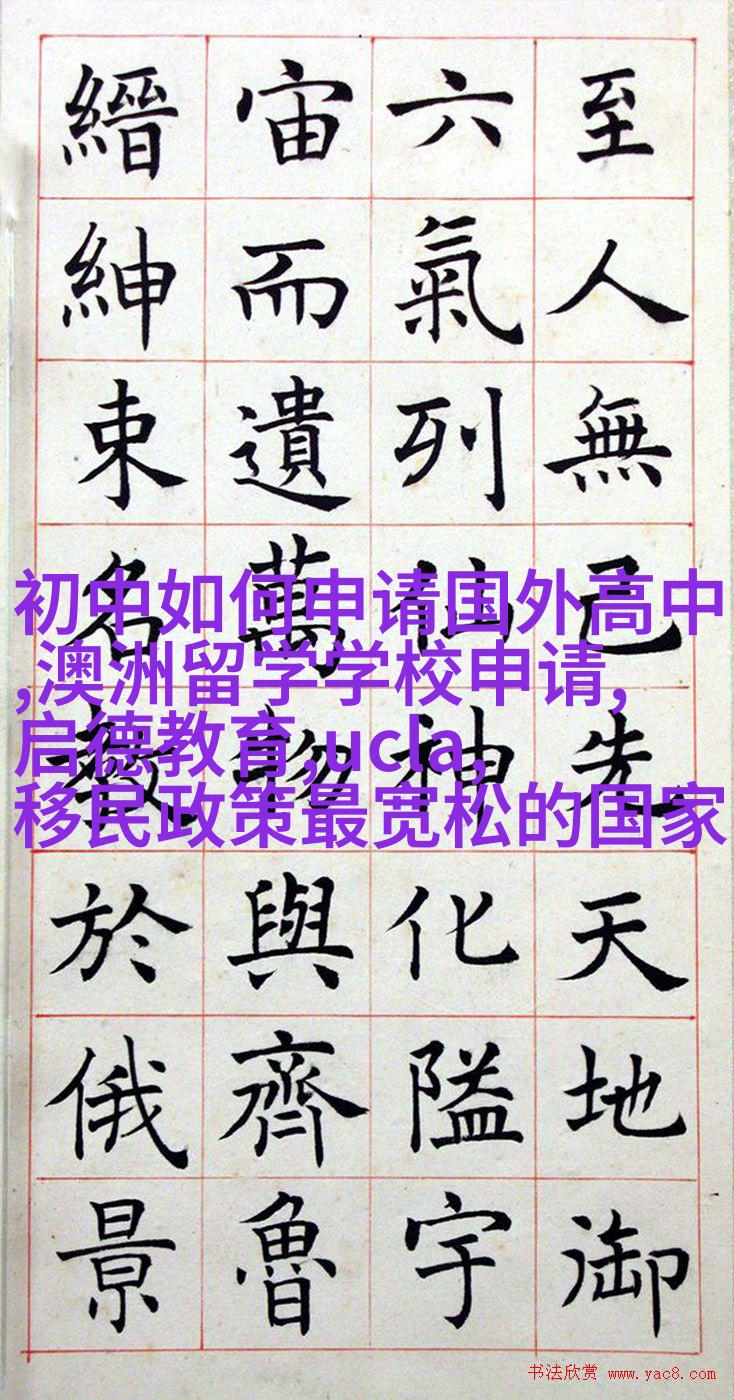 至人無己先天地御
六氣列仙神化隘宇
宙而遺萬物與齊魯
縉紳束名教於俄景
初中如何申请国外高中
,澳洲留学学校申请,
启德教育,ucla,
移民政策最宽松的国家
书法欣赏 www.yac8.com